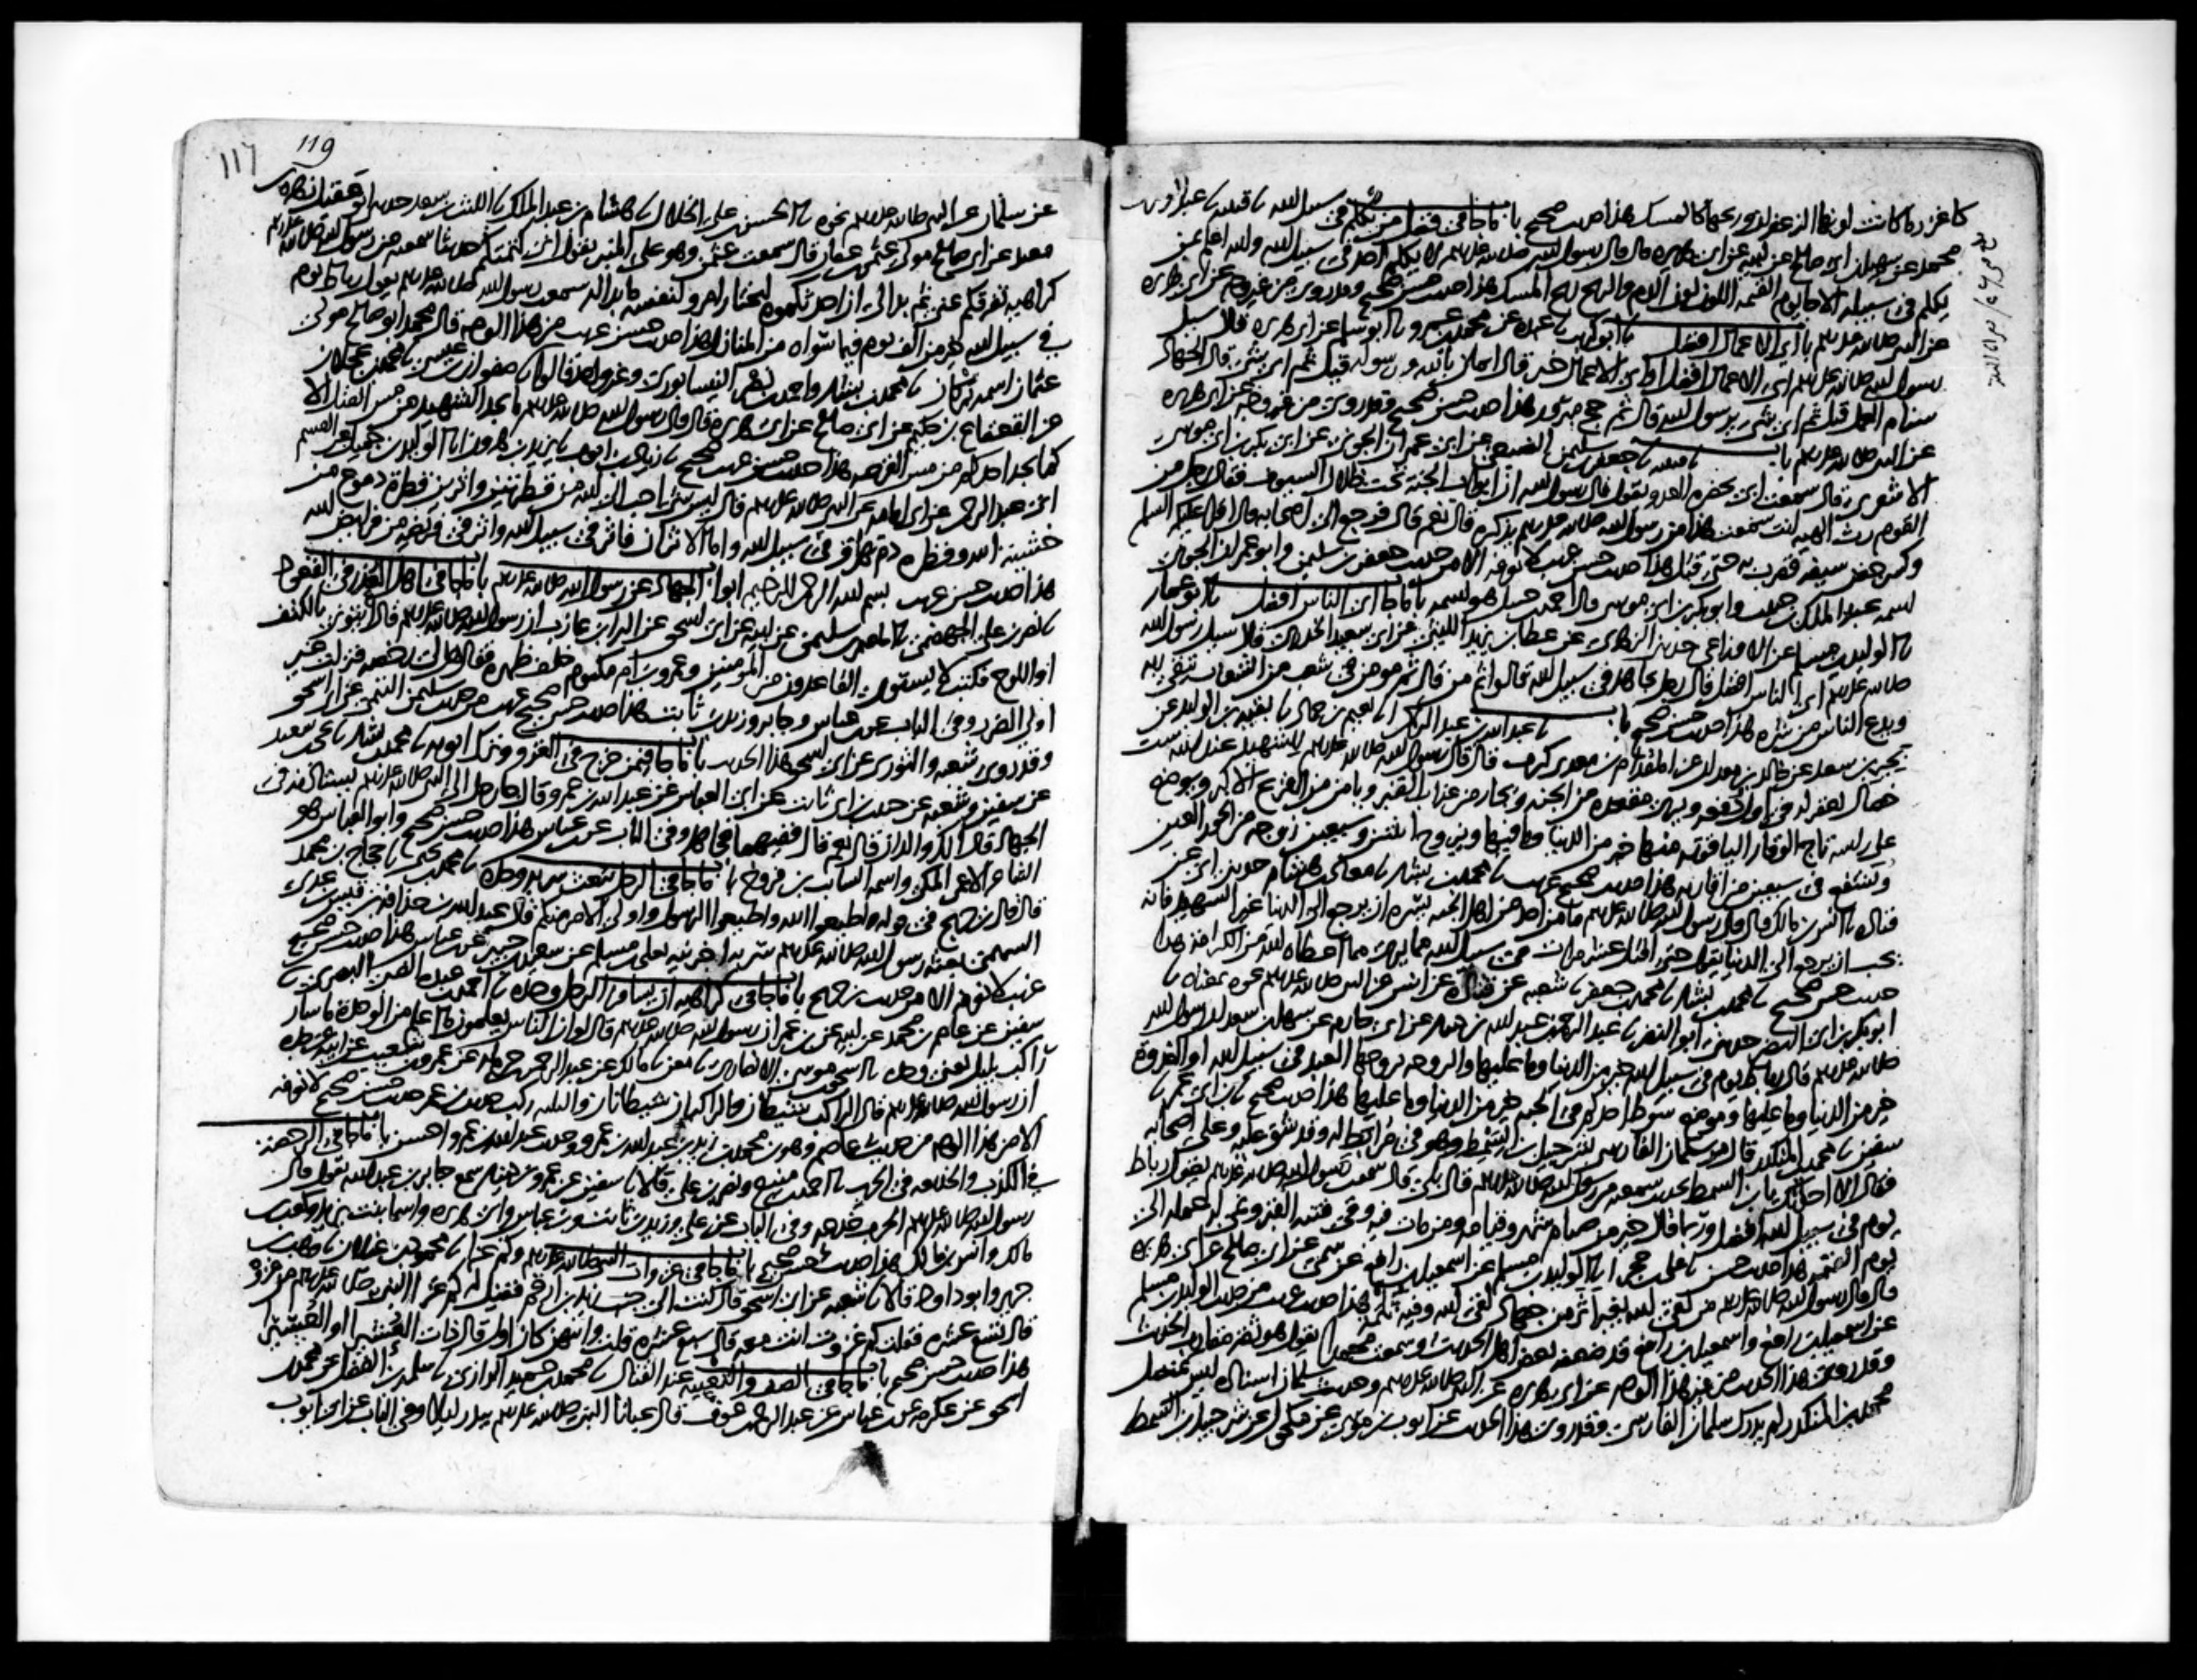 كاغزر ما كانت لونها الزعفران وريحها كالمسك هذا حديث صحيح باب ما جا في فضل من يكلم في سبيل الله نا قتيبة نا عبد العزيز بن
محمد عن سهيل بن ابي صالح عن ابيه عن ابي هريرة قال قال رسول الله صلى الله عليه وسلم لا يكلم احد في سبيل الله والله اعلم بمن
يكلم في سبيله الا جا يوم القيمة اللون لون الدم والريح ريح المسك هذا حديث حسن صحيح وقد روي من غير وجه عن ابي هريرة
عن النبي صلى الله عليه وسلم باب اي الاعمال افضل نا ابو كريب نا عبدة عن محمد بن عمرو نا ابو سلمة عن ابي هريرة قال سيل
رسول الله صلى الله عليه وسلم اي الاعمال افضل او اي الاعمال خير قال ايمان بالله ورسوله قيل ثم اي شي قال الجهاد
سنام العمل قيل ثم اي شي يرسول الله قال ثم حج مبرور هذا حديث حسن صحيح وقد روي من غير وجه عن ابي هريرة
عن النبي صلى الله عليه وسلم باب نا قتيبة نا جعفر بن سليمن الضبعي عن ابي عمران الجوني عن ابي بكر بن ابي موسى
الاشعري قال سمعت ابي بحضرة العدو يقول قال رسول الله ان ابواب الجنة تحت ظلال السيوف فقال رجل من
القوم رث الهيه انت سمعت هذا من رسول الله صلى الله عليه وسلم يذكره قال نعم قال فرجع الى اصحابه قال اقرا عليكم السلم
وكسر جفن سيفه فضرب به حتى قتل هذا حديث حسن غريب لا نعرفه الا من حديث جعفر بن سليمن وابو عمران الجوني
اسمه عبد الملك بن حبيب وابو بكر بن ابي موسى قال احمد بن حنبل هو اسمه باب ما جا اي الناس افضل نا ابو عمار
نا الوليد بن مسلم عن الاوزاعي حدثني الزهري عن عطا بن يزيد الليثي عن ابي سعيد الخدري قال سيل رسول الله
صلى الله عليه وسلم اي الناس افضل قال رجل يجاهد في سبيل الله قالوا ثم من قال ثم مومن في شعب من الشعاب يتقي ربه
ويدع الناس من شره هذا حديث حسن صحيح باب نا عبد الله بن عبد الرحمن نا نعيم بن حماد نا بقية بن الوليد عن
بحير بن سعد عن خالد بن معدان عن المقدام بن معدي كرب قال قال رسول الله صلى الله عليه وسلم للشهيد عند الله ست
خصال يغفر له في اول دفعه ويرى مقعده من الجنه ويجار من عذاب القبر ويامن من الفزع الاكبر ويوضع
على راسه تاج الوقار الياقوته منها خير من الدنيا وما فيها ويزوج اثنتين وسبعين زوجه من الحور العين
ويشفع في سبعين من اقاربه هذا حديث صحيح غريب نا محمد بن بشار نا معاذ بن هشام حدثني ابي عن
قتادة نا انس بن مالك قال قال رسول الله صلى الله عليه وسلم ما من احد من اهل الجنه يسره ان يرجع الى الدنيا غير الشهيد فانه
يحب ان يرجع الى الدنيا يقول حتى اقتل عشر مرات في سبيل الله مما يرى مما اعطاه الله من الكرامة هذا
حديث حسن صحيح نا محمد بن بشار نا محمد بن جعفر نا شعبه عن قتادة عن انس عن النبي صلى الله عليه وسلم نحوه بمعناه نا
ابو بكر بن ابي النضر حدثني ابو النضر نا عبد الرحمن بن عبد الله بن دينار عن ابي حازم عن سهل بن سعد ان رسول الله
صلى الله عليه وسلم قال رباط يوم في سبيل الله خير من الدنيا وما عليها والروحه يروحها العبد في سبيل الله او الغدوة
خير من الدنيا وما عليها وموضع سوط احدكم في الجنه خير من الدنيا وما عليها هذا حديث صحيح نا ابن ابي عمر نا
سفين نا محمد بن المنكدر قال مر سلمان الفارسي بشرحبيل بن السمط وهو في مرابط له وقد شق عليه وعلى اصحابه
فقال الا احدثك يا ابن السمط بحديث سمعته من رسول الله صلى الله عليه وسلم قال بلى قال سمعت رسول الله صلى الله عليه وسلم يقول رباط
يوم في سبيل الله افضل وربما قال خير من صيام شهر وقيامه ومن مات فيه وقي فتنة القبر ونمي له عمله الى
يوم القيمة هذا حديث حسن نا علي بن حجر انا الوليد بن مسلم عن اسمعيل بن رافع عن سمي عن ابي صالح عن ابي هريرة
قال قال رسول الله صلى الله عليه وسلم من لقي الله بغير اثر من جهاد لقي الله وفيه ثلمة هذا حديث غريب من حديث الوليد بن مسلم
عن اسمعيل بن رافع واسمعيل بن رافع قد ضعفه بعض اهل الحديث وسمعت محمدا يقول هو ثقه مقارب الحديث
وقد روي هذا الحديث من غير هذا الوجه عن ابي هريرة عن النبي صلى الله عليه وسلم وحديث سلمان اسناده ليس بمتصل
محمد بن المنكدر لم يدرك سلمان الفارسي وقد روي هذا الحديث عن ايوب بن موسى عن مكحول عن شرحبيل بن السمط
119
117
عن سلمان عن النبي صلى الله عليه وسلم نحوه نا الحسن بن علي الخلال نا هشام بن عبد الملك نا الليث بن سعد حدثني ابو عقيل زهرة بن
معبد عن ابي صالح مولى عثمن بن عفان قال سمعت عثمن وهو على المنبر يقول اني كتمتكم حديثا سمعته من رسول الله صلى الله عليه وسلم
كراهية تفرقكم عني ثم بدا لي ان احدثكموه ليختار امرو لنفسه ما بدا له سمعت رسول الله صلى الله عليه وسلم يقول رباط يوم
في سبيل الله خير من الف يوم فيما سواه من المنازل هذا حديث حسن غريب من هذا الوجه قال محمد ابو صالح مولى
عثمان اسمه بركان نا محمد بن بشار واحمد بن نصر النيسابوري وغير واحد قالوا نا صفوان بن عيسى نا محمد بن عجلان
عن القعقاع بن حكيم عن ابي صالح عن ابي هريرة قال قال رسول الله صلى الله عليه وسلم ما يجد الشهيد من مس القتل الا
كما يجد احدكم من مس القرصه هذا حديث حسن غريب صحيح نا زياد بن ايوب نا يزيد بن هرون انا الوليد بن جميل عن القسم
ابي عبد الرحمن عن ابي امامه عن النبي صلى الله عليه وسلم قال ليس شي احب الى الله من قطرتين واثرين قطرة دموع من
خشية الله وقطرة دم تهراق في سبيل الله واما الاثران فاثر في سبيل الله واثر في فريضه من فرايض الله
هذا حديث حسن غريب بسم الله الرحمن الرحيم ابواب الجهاد عن رسول الله صلى الله عليه وسلم باب ما جا في اهل العذر في القعود
نا نصر بن علي الجهضمي نا المعتمر بن سليمن عن ابيه عن ابي اسحق عن البراء بن عازب ان رسول الله صلى الله عليه وسلم قال ايتوني بالكتف
او اللوح فكتب لا يستوي القاعدون من المومنين وعمرو بن ام مكتوم خلف ظهره فقال هل لي رخصه فنزلت غير
اولي الضرر وفي الباب عن ابن عباس وجابر وزيد بن ثابت هذا حديث حسن صحيح غريب من حديث سليمن التيمي عن ابي اسحق
وقد روى شعبه والثوري عن ابي اسحق هذا الحديث باب ما جا فيمن خرج في الغزو وترك ابويه نا محمد بن بشار نا يحيى بن سعيد
عن سفين وشعبه عن حبيب بن ابي ثابت عن ابي العباس عن عبد الله بن عمرو قال جا رجل الى النبي صلى الله عليه وسلم يستاذنه في
الجهاد فقال الك والدان قال نعم قال ففيهما فجاهد وفي الباب عن ابن عباس هذا حديث حسن صحيح وابو العباس هو
الشاعر الاعمى المكي واسمه السائب بن فروخ باب ما جا في الرجل يبعث سرية وحده نا محمد بن يحيى نا حجاج بن محمد
قال قال ابن جريج في قوله اطيعوا الله واطيعوا الرسول واولي الامر منكم قال عبد الله بن حذافه بن قيس بن عدي
السهمي بعثه رسول الله صلى الله عليه وسلم سرية اخبرنيه يعلى بن مسلم عن سعيد بن جبير عن ابن عباس هذا حديث حسن صحيح
غريب لا نعرفه الا من حديث ابن جريج باب ما جا في كراهية ان يسافر الرجل وحده نا احمد بن عبدة الضبي البصري نا
سفين عن عاصم بن محمد عن ابيه عن ابن عمر ان رسول الله صلى الله عليه وسلم قال لو ان الناس يعلمون ما اعلم من الوحدة ما سار
راكب بليل يعني وحده نا اسحق بن موسى الانصاري نا معن نا مالك عن عبد الرحمن بن حرملة عن عمرو بن شعيب عن ابيه عن جده
ان رسول الله صلى الله عليه وسلم قال الراكب شيطان والراكبان شيطانان والثلثه ركب حديث ابن عمر حديث حسن صحيح لا نعرفه
الا من هذا الوجه من حديث عاصم وهو ابن محمد بن زيد بن عبد الله بن عمر وحديث عبد الله بن عمرو احسن باب ما جا في الرخصة
في الكذب والخديعه في الحرب نا احمد بن منيع ونصر بن علي قالا نا سفين عن عمرو بن دينار سمع جابر بن عبد الله يقول قال
رسول الله صلى الله عليه وسلم الحرب خدعه وفي الباب عن علي وزيد بن ثابت وابن عباس وابي هريره واسما بنت يزيد وكعب بن
مالك وانس بن مالك هذا حديث حسن صحيح باب ما جا في غزوات النبي صلى الله عليه وسلم وكم غزا نا محمود بن غيلان نا وهب بن
جرير وابو داود قالا نا شعبه عن ابي اسحق قال كنت الى جنب زيد بن ارقم فقيل له كم غزا النبي صلى الله عليه وسلم من غزوة
قال تسع عشره فقلت كم غزوت انت معه قال سبع عشره قلت وايتهن كان اول قال ذات العشيرا او العسيرا
هذا حديث حسن صحيح باب ما جا في الصف والتعبيه عند القتال نا محمد بن حميد الرازي نا سلمة بن الفضل عن محمد بن
اسحق عن عكرمه عن ابن عباس عن عبد الرحمن بن عوف قال عبانا النبي صلى الله عليه وسلم ببدر ليلا وفي الباب عن ابي ايوب